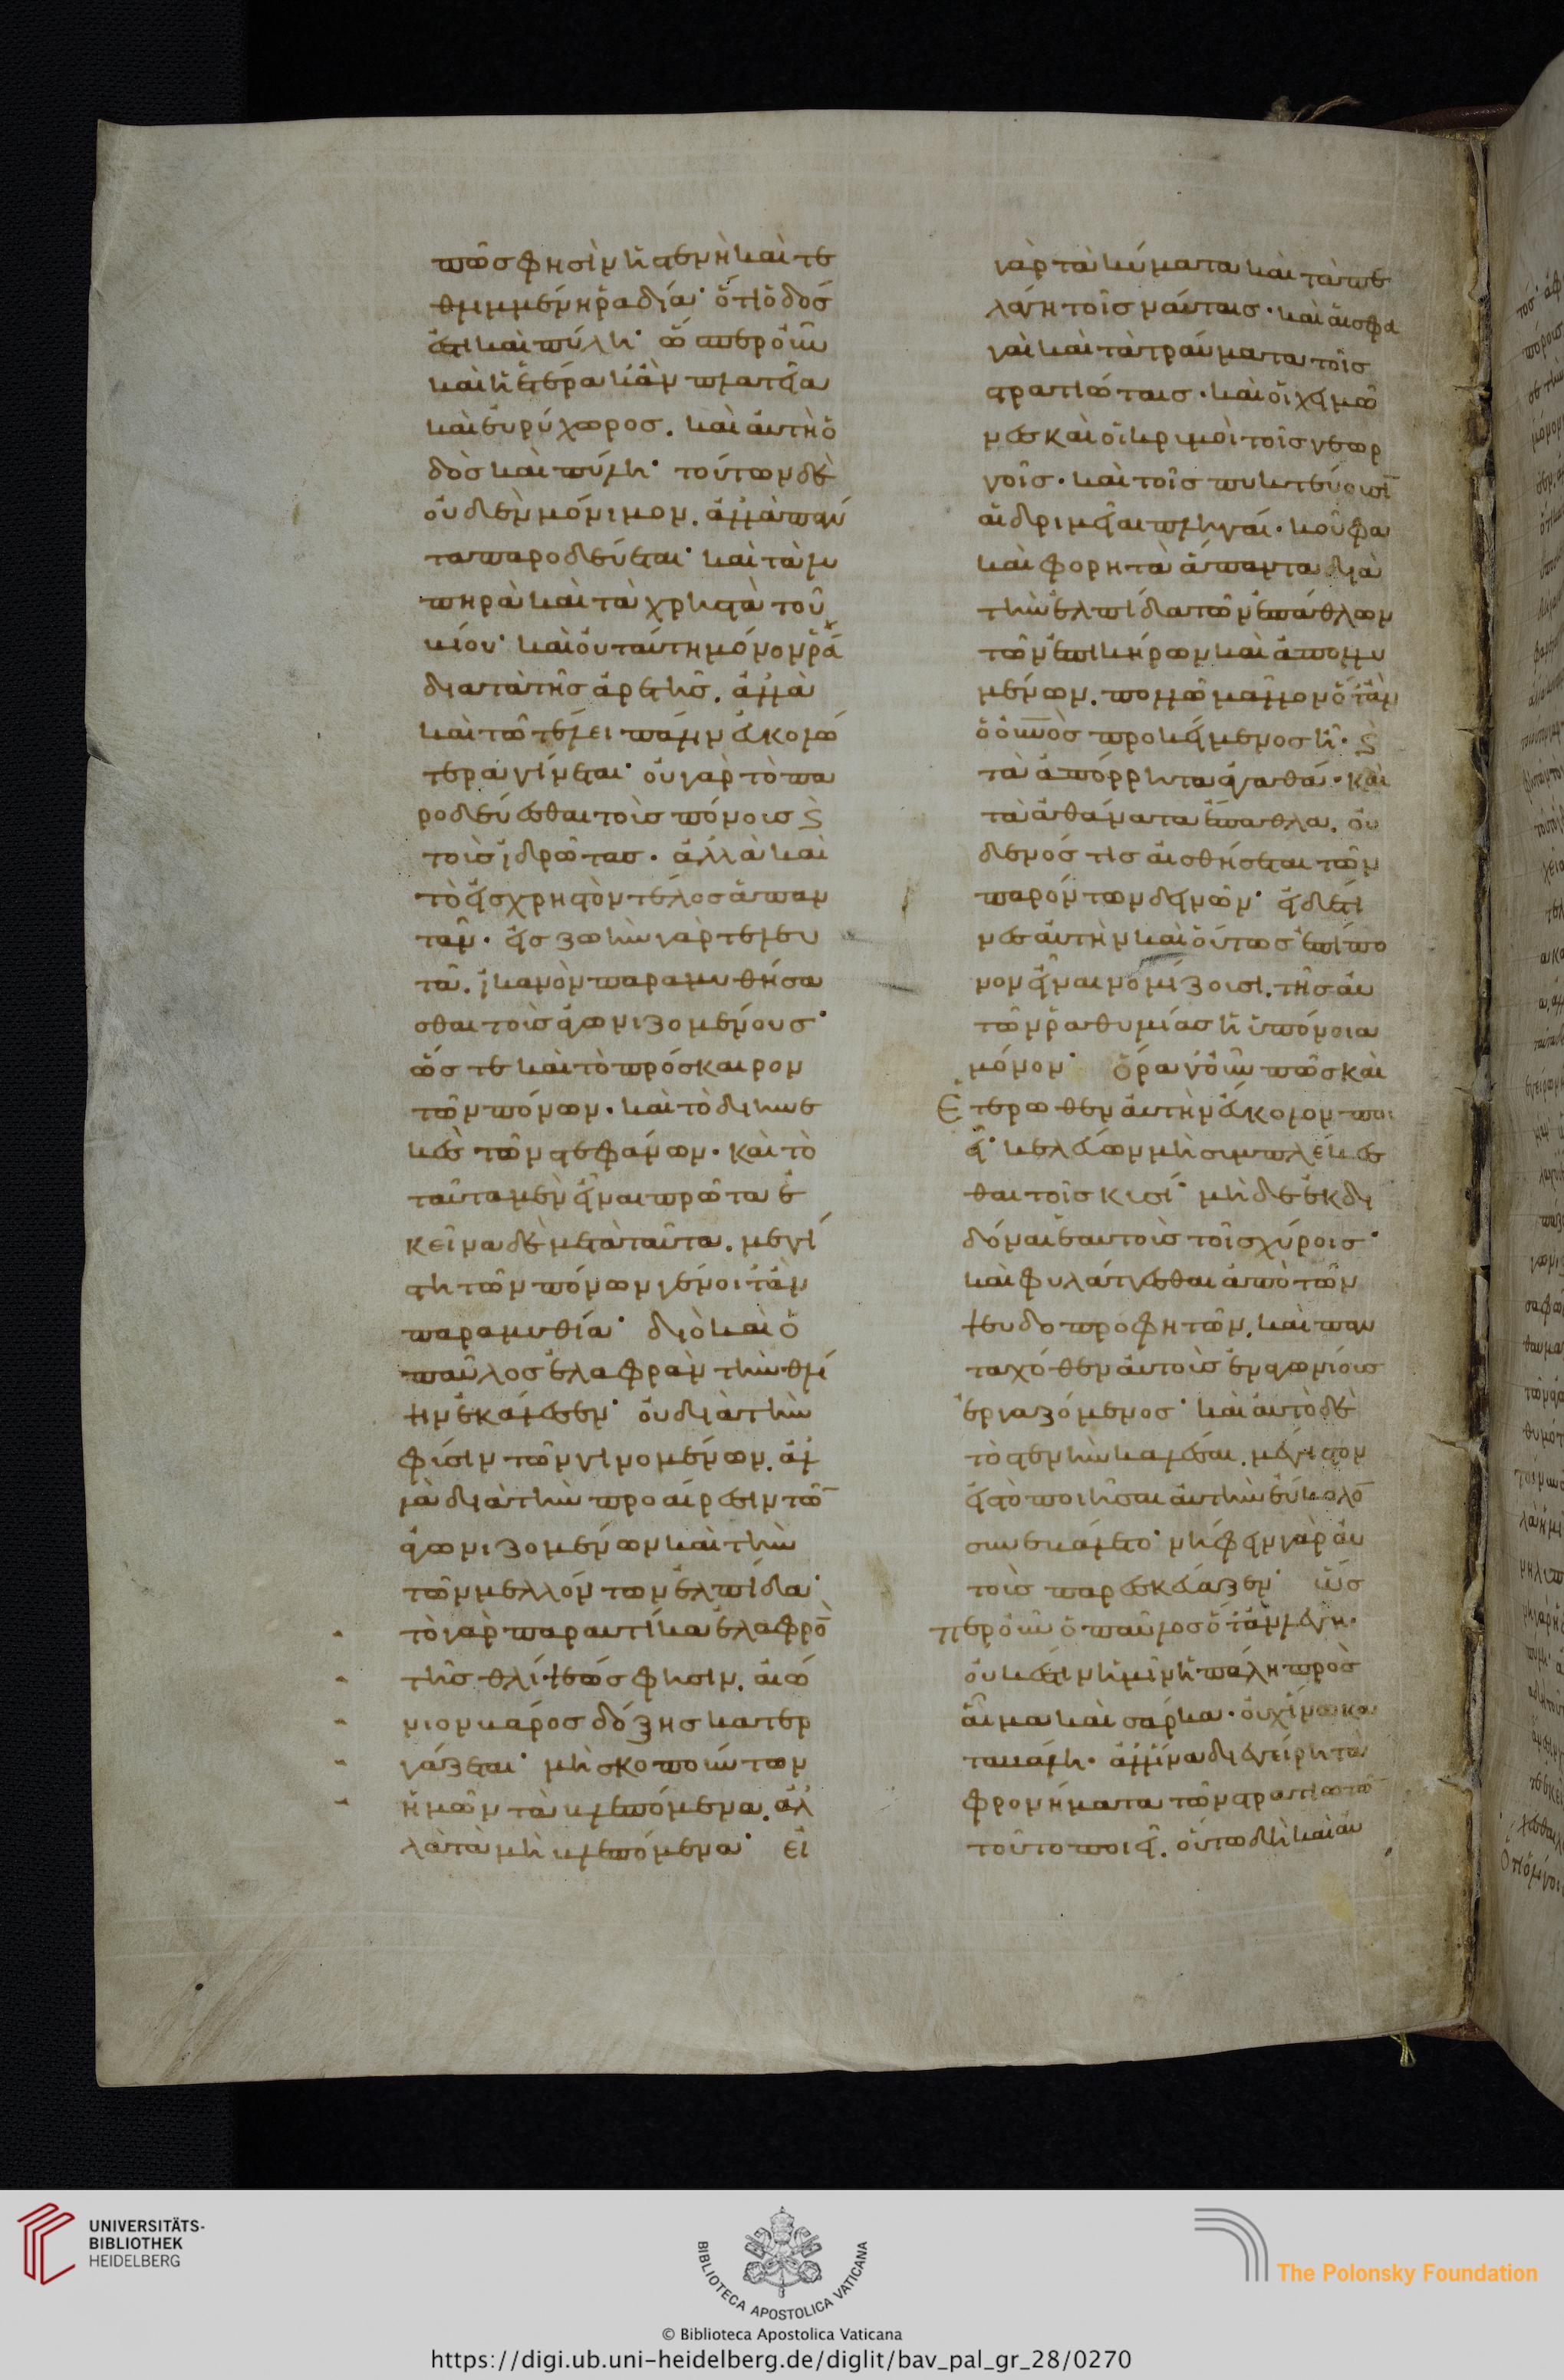 πῶς φησὶν ἡ στενὴ καὶ τε
θλιμμένη ῥαδία· ὅτι ὁδός
ἐστι καὶ πύλη· ὥσπερ οὖν
καὶ ἡ ἑτέρα κἂν πλατεῖα
καὶ εὐρύχωρος. καὶ αὐτὴ ὁ
δὸς καὶ πύλη· τούτων δὲ
οὐδὲν μόνιμον. ἀλλὰ πάν
τα παροδεύεται· καὶ τὰ λυ
πηρὰ καὶ τὰ χρηστὰ τοῦ
βίου· καὶ οὐ ταύτη μόνον ῥά
δια τὰ τῆς ἀρετῆς. ἀλλὰ
καὶ τῶ τέλει πάλιν εὐκολώ
τερα γίνεται· οὐ γὰρ τὸ πα
ροδεύεσθαι τοὺς πόνους ϗ
τοὺς ἱδρῶτας. ἀλλὰ καὶ
τὸ εἰς χρηστὸν τέλος ἀπαν
τᾶν. εἰς ζωὴν γὰρ τελευ
τᾶ. ἱκανὸν παραμυθήσα
σθαι τοὺς ἀγωνιζομένους·
ὥστε καὶ τὸ πρόσκαιρον
τῶν πόνων. καὶ τὸ διηνε
κὲς τῶν στεφάνων. καὶ τὸ
ταῦτα μὲν εἶναι πρῶτα ἐ
κεῖνα δὲ μετὰ ταῦτα. μεγί
στη τῶν πόνων γένοιτἂν
παραμυθία· διὸ καὶ ὁ
παῦλος ἐλαφρὰν τὴν θλί
ψιν ἐκάλεσεν· οὐ διὰ τὴν
φύσιν τῶν γινομένων. ἀλ
λὰ διὰ τὴν προαίρεσιν τῶ̅
ἀγωνιζομένων καὶ τὴν
τῶν μελλόντων ἐλπίδα·
τὸ γὰρ παραυτίκα ἐλαφρὸ̅
τῆς θλίψεώς φησιν. αἰώ
νιον βάρος δόξης κατερ
γάζεται· μὴ σκοπούντων
ἡμῶν τὰ βλεπόμενα. ἀλ
λὰ τὰ μὴ βλεπόμενα· εἰ
γὰρ τὰ κύματα καὶ τὰ πε
λάγη τοῖς ναύταις. καὶ αἱ σφα
γαὶ καὶ τὰ τραύματα τοῖς
στρατιώταις. καὶ οἱ χειμῶ
νες καὶ οἱ κρυμοὶ τοῖς γεωρ
γοῖς. καὶ τοῖς πυκτεύουσι̅
αἱ δριμεῖαι πληγαί. κοῦφα
καὶ φορητὰ ἅπαντα διὰ
τὴν ἐλπίδα τῶν ἐπάθλων
τῶν ἐπικήρων καὶ ἀπολλυ
μένων. πολλῶ μᾶλλον ὅταν
ὁ ου̅νο̅ς προκείμενος ἦ. ϗ
τὰ ἀπόρρητα ἀγαθά. καὶ
τὰ ἀθάνατα ἔπαθλα. οὐ
δενός τις αἰσθήσεται τῶν
παρόντων δεινῶν· εἰ δέ τι
νες αὐτὴν καὶ οὕτως ἐπίπο
νον εἶναι νομίζουσι. τῆς αὐ
τῶν ῥαθυμίας ἡ ὑπόνοια
μόνον· ὅρα γοῦν πῶς καὶ
Ἑτέρωθεν αὐτὴν εὔκολον ποι
εῖ· κελεύων μὴ συμπλέκεσ
θαι τοῖς κυσί· μὴ δὲ ἐκδι
δόναι ἑαυτοὺς τοῖς χύροις·
καὶ φυλάττεσθαι ἀπὸ τῶν
ψευδοπροφητῶν. καὶ παν
ταχόθεν αὐτοὺς ἐναγωνίους
ἐργαζόμενος· καὶ αὐτὸ δὲ
τὸ στενὴν καλέσαι. μέγιστον
εἰς τὸ ποιῆσαι αὐτὴν εὔκολο̅
συνεβάλετο· νήφειν γὰρ αὐ
τοὺς παρεσκεύαζεν· ὥσ
περ οὖν ὁ παῦλος ὅταν λέγη.
οὐκ ἔστιν ἡμῖν ἡ πάλη πρὸς
αἷμα καὶ σάρκα. οὐχ ἵνα κα
ταβάλη. ἀλλ ἵνα διεγείρη τὰ
φρονήματα τῶν στρατιωτῶ̅
τοῦτο ποιεῖ. οὕτω δὴ καὶ αὐ
UNIVERSITÄTS-
BIBLIOTHEK
HEIDELBERG
BIBLIOTECA APOSTOLICA VATICANA
© Biblioteca Apostolica Vaticana
The Polonsky Foundation
https://digi.ub.uni-heidelberg.de/diglit/bav_pal_gr_28/0270